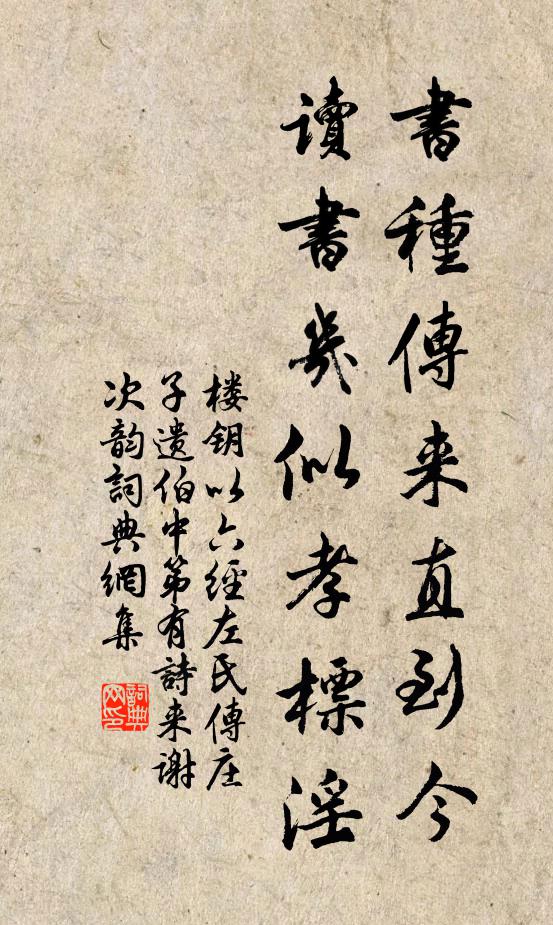 書種傳来直到今
讀書幾似孝標淫
楼钥以六經左氏傳庄
子遗伯中第有詩来谢
次韵詞典網集
詞典
网印